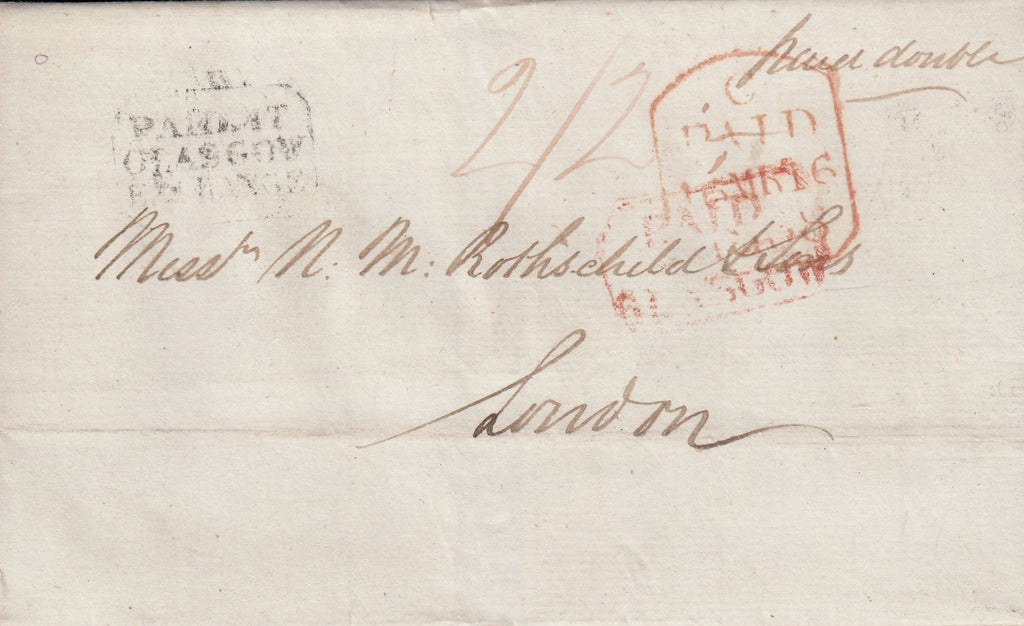 Paid double
2/2
PAID AT
GLASGOW
EXCHANGE
PAID
PAID
GLASGOW
Messrs N. M: Rothschild & Sons
London